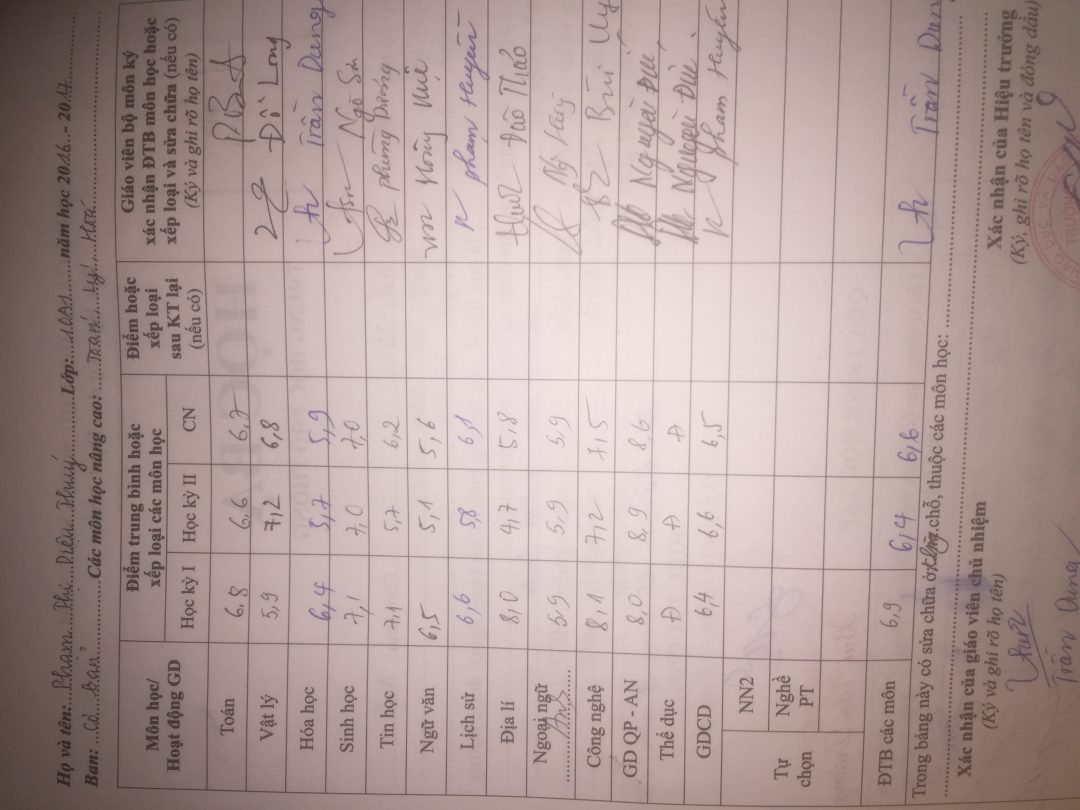 Họ và tên: Phạm Thị Diễm Thuý Lớp: 10A1 năm học 2016 - 2017
Ban: Cơ bản Các môn học nâng cao: Toán, Lý, Hoá
Môn học/ Hoạt động GD
Điểm trung bình hoặc xếp loại các môn học
Học kỳ I Học kỳ II CN
Điểm hoặc xếp loại sau KT lại (nếu có)
Giáo viên bộ môn ký xác nhận ĐTB môn học hoặc xếp loại và sửa chữa (nếu có)
(Ký và ghi rõ họ tên)
Toán 6,8 6,6 6,7
Vật lý 5,9 7,2 6,8 Long
Hóa học 6,4 5,7 5,9 Trần Dung
Sinh học 7,1 7,0 7,0 Ngô
Tin học 7,1 5,7 6,2 Phương
Ngữ văn 6,5 5,1 5,6 Hồng Huệ
Lịch sử 6,6 5,8 6,1 Phạm Huyền
Địa lí 8,0 4,7 5,8 Đào Thảo
Ngoại ngữ Anh 5,9 5,9 5,9
Công nghệ 8,1 7,2 7,5 Bùi
GD QP - AN 8,0 8,9 8,6 Nguyễn
Thể dục Đ Đ Đ Nguyễn
GDCD 6,4 6,6 6,5 Phạm Huyền
Tự chọn
NN2
Nghề PT
ĐTB các môn 6,9 6,4 6,6 Trần Dung
Trong bảng này có sửa chữa ở chỗ, thuộc các môn học:
Xác nhận của giáo viên chủ nhiệm
(Ký và ghi rõ họ tên)
Trần Dung
Xác nhận của Hiệu trưởng
(Ký, ghi rõ họ tên và đóng dấu)